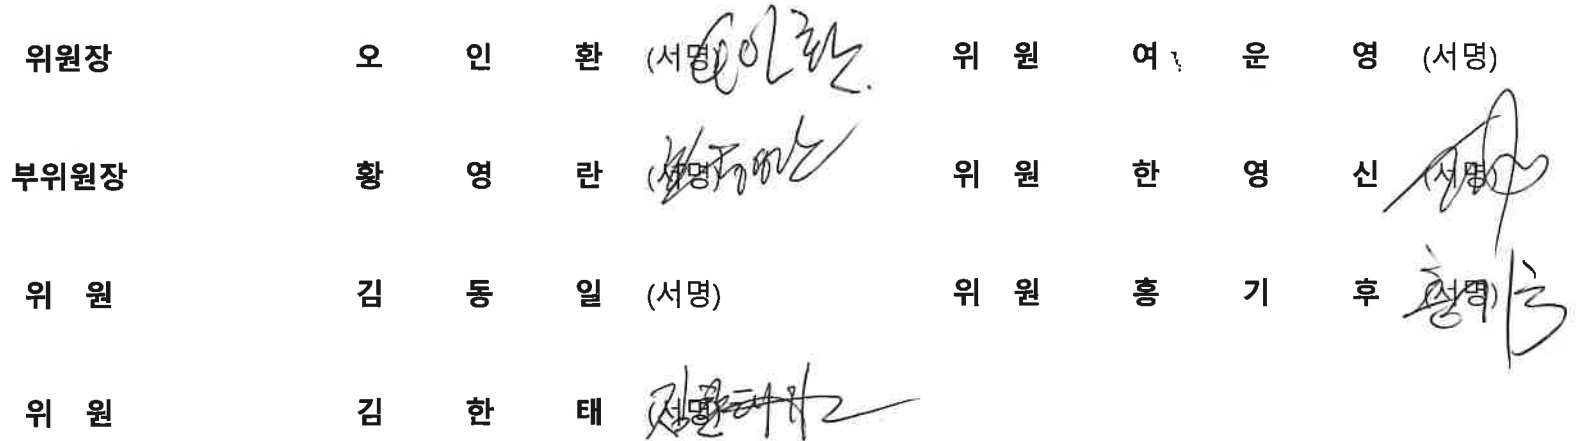 위원장 오 인 환 (서명) 오인환 위 원 여 운 영 (서명)
부위원장 황 영 란 (서명) 황영란 위 원 한 영 신 (서명)
위 원 김 동 일 (서명) 위 원 홍 기 후 (서명) 홍기후
위 원 김 한 태 (서명) 김한태